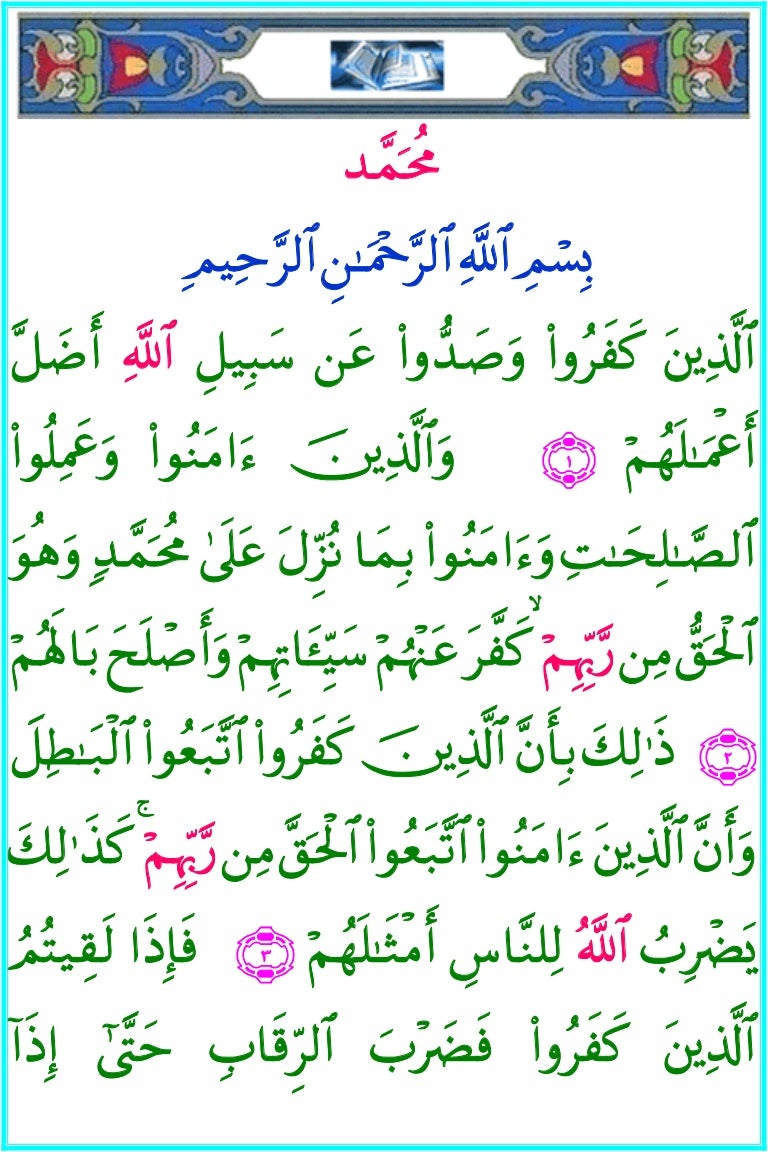 مُحَمَّد
بِسْمِ ٱللَّهِ ٱلرَّحْمَـٰنِ ٱلرَّحِيمِ
ٱلَّذِينَ كَفَرُوا۟ وَصَدُّوا۟ عَن سَبِيلِ ٱللَّهِ أَضَلَّ
أَعْمَـٰلَهُمْ ١ وَٱلَّذِينَ ءَامَنُوا۟ وَعَمِلُوا۟
ٱلصَّـٰلِحَـٰتِ وَءَامَنُوا۟ بِمَا نُزِّلَ عَلَىٰ مُحَمَّدٍ وَهُوَ
ٱلْحَقُّ مِن رَّبِّهِمْ ۙ كَفَّرَ عَنْهُمْ سَيِّـَٔاتِهِمْ وَأَصْلَحَ بَالَهُمْ
٢ ذَٰلِكَ بِأَنَّ ٱلَّذِينَ كَفَرُوا۟ ٱتَّبَعُوا۟ ٱلْبَـٰطِلَ
وَأَنَّ ٱلَّذِينَ ءَامَنُوا۟ ٱتَّبَعُوا۟ ٱلْحَقَّ مِن رَّبِّهِمْ ۚ كَذَٰلِكَ
يَضْرِبُ ٱللَّهُ لِلنَّاسِ أَمْثَـٰلَهُمْ ٣ فَإِذَا لَقِيتُمُ
ٱلَّذِينَ كَفَرُوا۟ فَضَرْبَ ٱلرِّقَابِ حَتَّىٰٓ إِذَآ